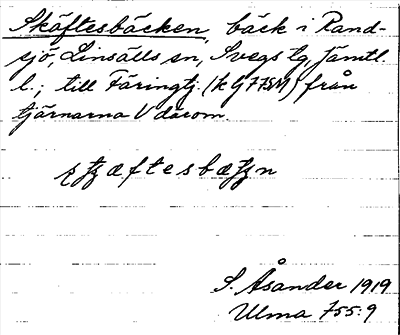 Skäftesbäcken, bäck i Rand-
sjö, Linsälls sn, Svegs tg, Jämtl.
l.; till Färingtj. (k G 77SM) från
tjärnarna V därom.
S. Åsander 1919
Ulma 755:9